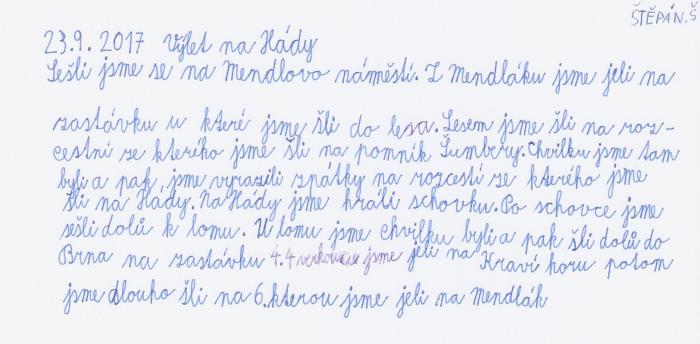 ŠTĚPÁN.Š
23.9. 2017 Výlet na Hády
Sešli jsme se na Mendlovo náměstí. Z Mendláku jsme jeli na
zastávku u které jsme šli do lesa. Lesem jsme šli na roz-
cestní ze kterého jsme šli na pomník Šumbery. Chvilku jsme tam
byli a pak, jsme vyrazili zpátky na rozcestí ze kterého jsme
šli na Hády. Na Hády jsme hráli schovku. Po schovce jsme
sešli dolů k lomu. U lomu jsme chvilku byli a pak šli dolů do
Brna na zastávku 4. 4 jsme jeli na Kraví horu potom
jsme dlouho šli na 6. kterou jsme jeli na Mendlák